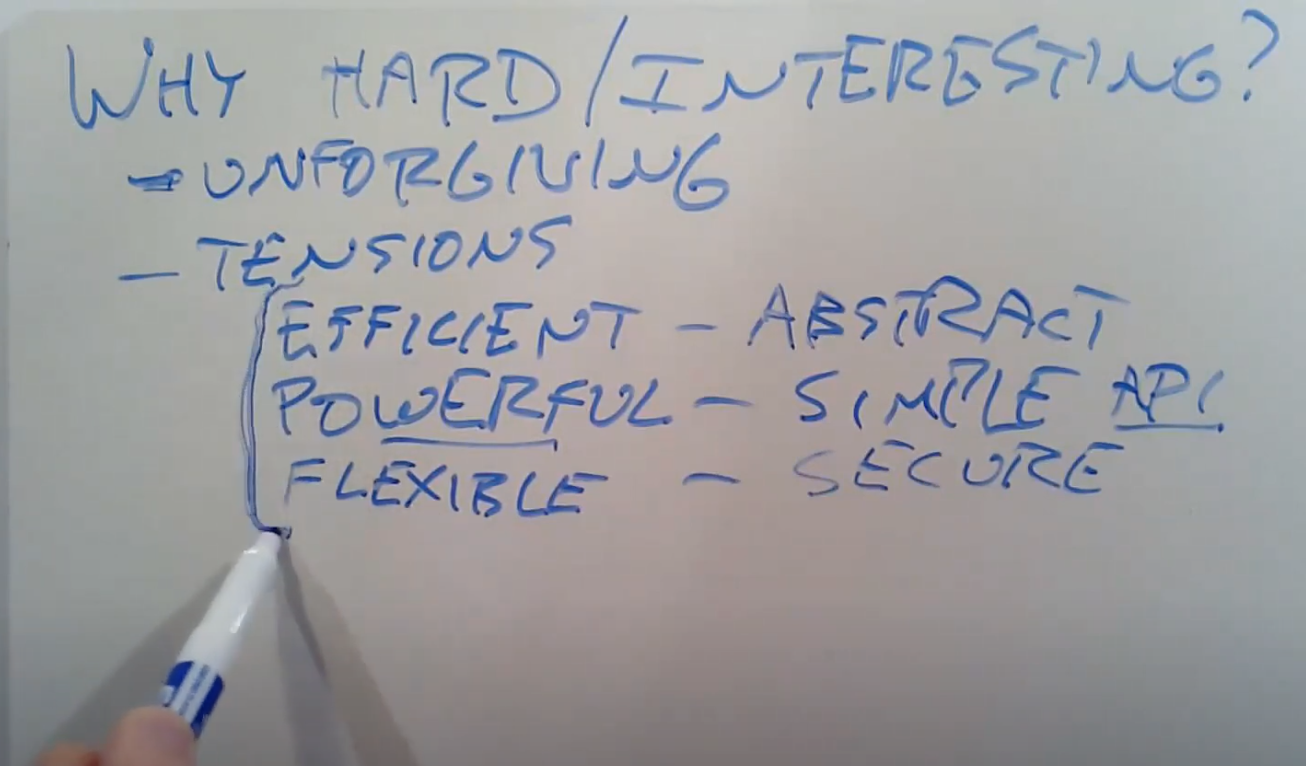 WHY HARD/INTERESTING?
- UNFORGIVING
- TENSIONS
EFFICIENT - ABSTRACT
POWERFUL - SIMPLE API
FLEXIBLE - SECURE